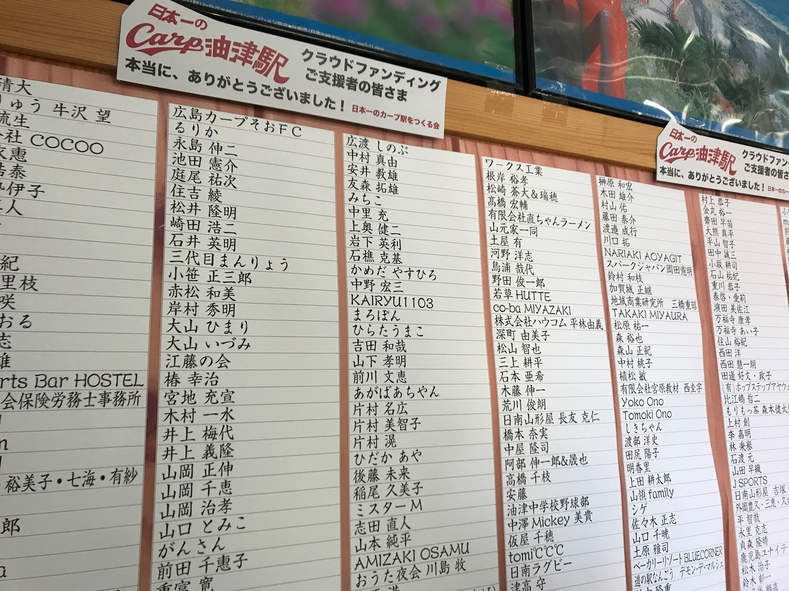 日本一の
Carp油津駅
クラウドファンディング
ご支援者の皆さま
本当に、ありがとうございました!
日本一のカープ駅をつくる会
日本一の
Carp油津駅
クラウドファン
ご支援者の皆さ
本当に、ありがとうございました!
清大
りゅう 牛沢 望
流生
会社 COCOO
伊子
紀
里枝
咲
おる
志
雄
rts Bar HOSTEL
会保険労務士事務所
裕美子・七海・有紗
郎
広島カープそおFC
るりか
永島 伸二
池田 憲介
庭尾 祐次
住吉 綾
松井 隆明
崎田 浩二
石井 英明
三代目まんりょう
小笹 正三郎
赤松 和美
岸村 秀明
大山 ひまり
大山 いづみ
江藤の会
椿 幸治
宮地 充宣
木村 一水
井上 梅代
井上 義隆
山岡 正伸
山岡 千恵
山岡 治孝
山口 とみこ
がんさん
前田 千恵子
重富 寛
広渡 しのぶ
中村 真由
安井 教雄
友森 拓雄
みちこ
中里 充
上奥 健二
岩下 英利
石樵 克基
かめだ やすひろ
中野 宏三
KAIRYU1103
まろぽん
ひらたうまこ
吉田 和哉
山下 孝明
前川 文恵
あがぱあちゃん
片村 名広
片村 美智子
片村 滉
ひだか あや
後藤 未来
稲尾 久美子
ミスターM
志田 直人
山本 純平
AMIZAKI OSAMU
おうた夜会 川島 牧
ワークス工業
根岸 裕孝
松崎 蒼大&瑞穂
高橋 宏輔
有限会社直ちゃんラーメン
山元家一同
土屋 有
河野 洋志
鳥浦 哉代
野田 俊一郎
若草HUTTE
co-ba MIYAZAKI
株式会社ハウコム 平林由義
深町 由美子
松山 智也
三上 耕平
石本 亜希
木藤 伸一
荒川 俊朗
日南山形屋 長友 克仁
橋本 奈実
中屋 隆司
阿部 伸一郎&晟也
高橋 千枝
安藤
油津中学校野球部
中澤 Mickey 美貴
仮屋 千穂
tomi℃℃℃
日南ラグビー
津高 守
榊原 和宏
木田 雄介
村山 佑
藤田 泰介
渡邉 成行
川口 拓
NARIAKI AOYAGIT
スパークジャパン岡田憲明
鈴村 和枝
加賀城 正継
地域商業研究所 三橋重昭
TAKAKI MIYAURA
松原 祐一
森 裕也
森山 正紀
中村 桃子
植松 敏
有限会社宮原教材 西圭字
Yoko Ono
Tomoki Ono
しきちゃん
渡部 洋史
田尻 陽子
明春里
上田 耕太郎
山領 family
シゲ
佐々木 正志
山口 千暁
土原 雅司
ベーカリーリゾートBLUECORNER
道の駅なんごう デモン・デ・マルシェ
村上 恭子
金丸 裕一
齋田 早苗
大熊 真平
平山 智子
田中 誠三
小坂 耕司
石山 祐紀
重川 恭子
泰啓・愛莉
濱田 英佐江
万福寺 康孝
万福寺 あい子
住山 裕紀
西田 洋
西田 慧一朗
田邉 好文・政子
(有)ホップステップアヤウ
比江嶋 哲二
もりもっ茶 森本健太
上村 創
李 嘉明
林 栄樂
石渡 元
山田 早織
J SPORTS
日南山形屋 吉塚
平 智哉
永里 克志
貞森 隆晴
鹿児島ユナイテ
松木 治子
鈴木 創一